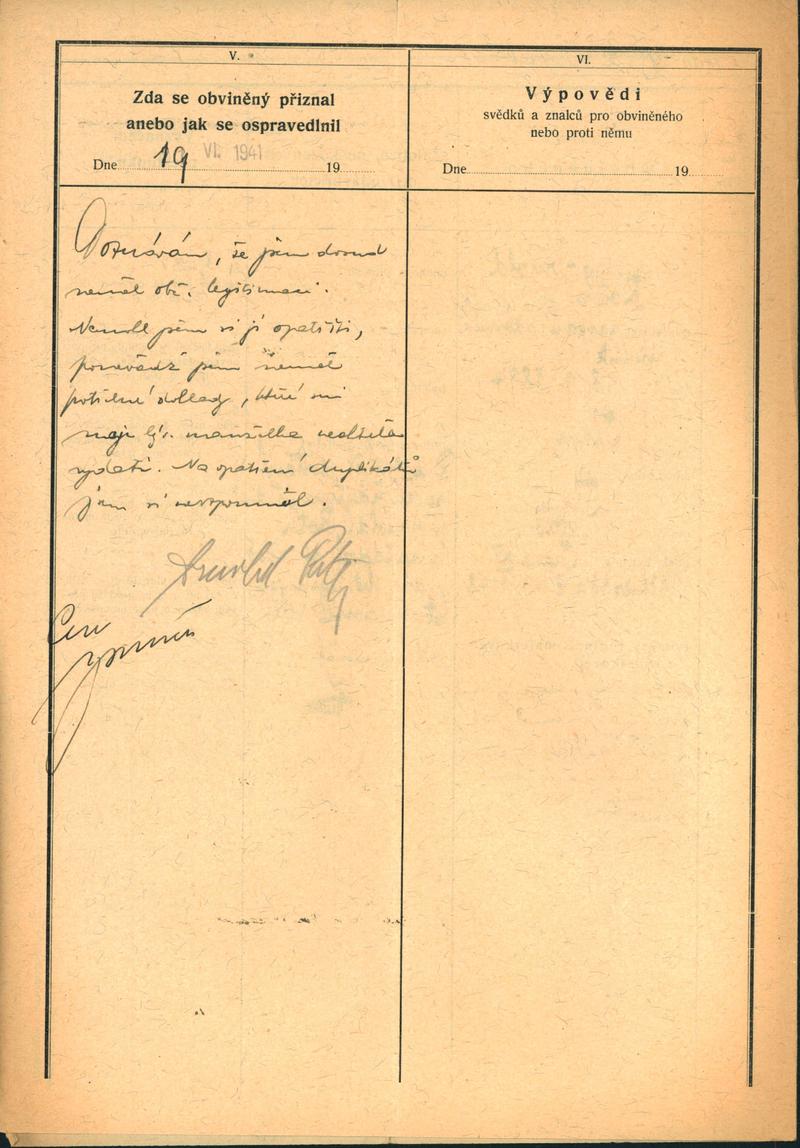 V.
Zda se obviněný přiznal
anebo jak se ospravedlnil
Dne 19 VI. 1941 19
VI.
Výpovědi
svědků a znalců pro obviněného
nebo proti němu
Dne 19
Doznávám, že jsem dosud
neměl obč. legitimaci.
Nemohl jsem si ji opatřiti,
poněvadž jsem neměl
potřebné doklady, které mi
moje býv. manželka nechtěla
vydati. Na opatření duplikátů
jsem si nevzpomněl.
Arnold